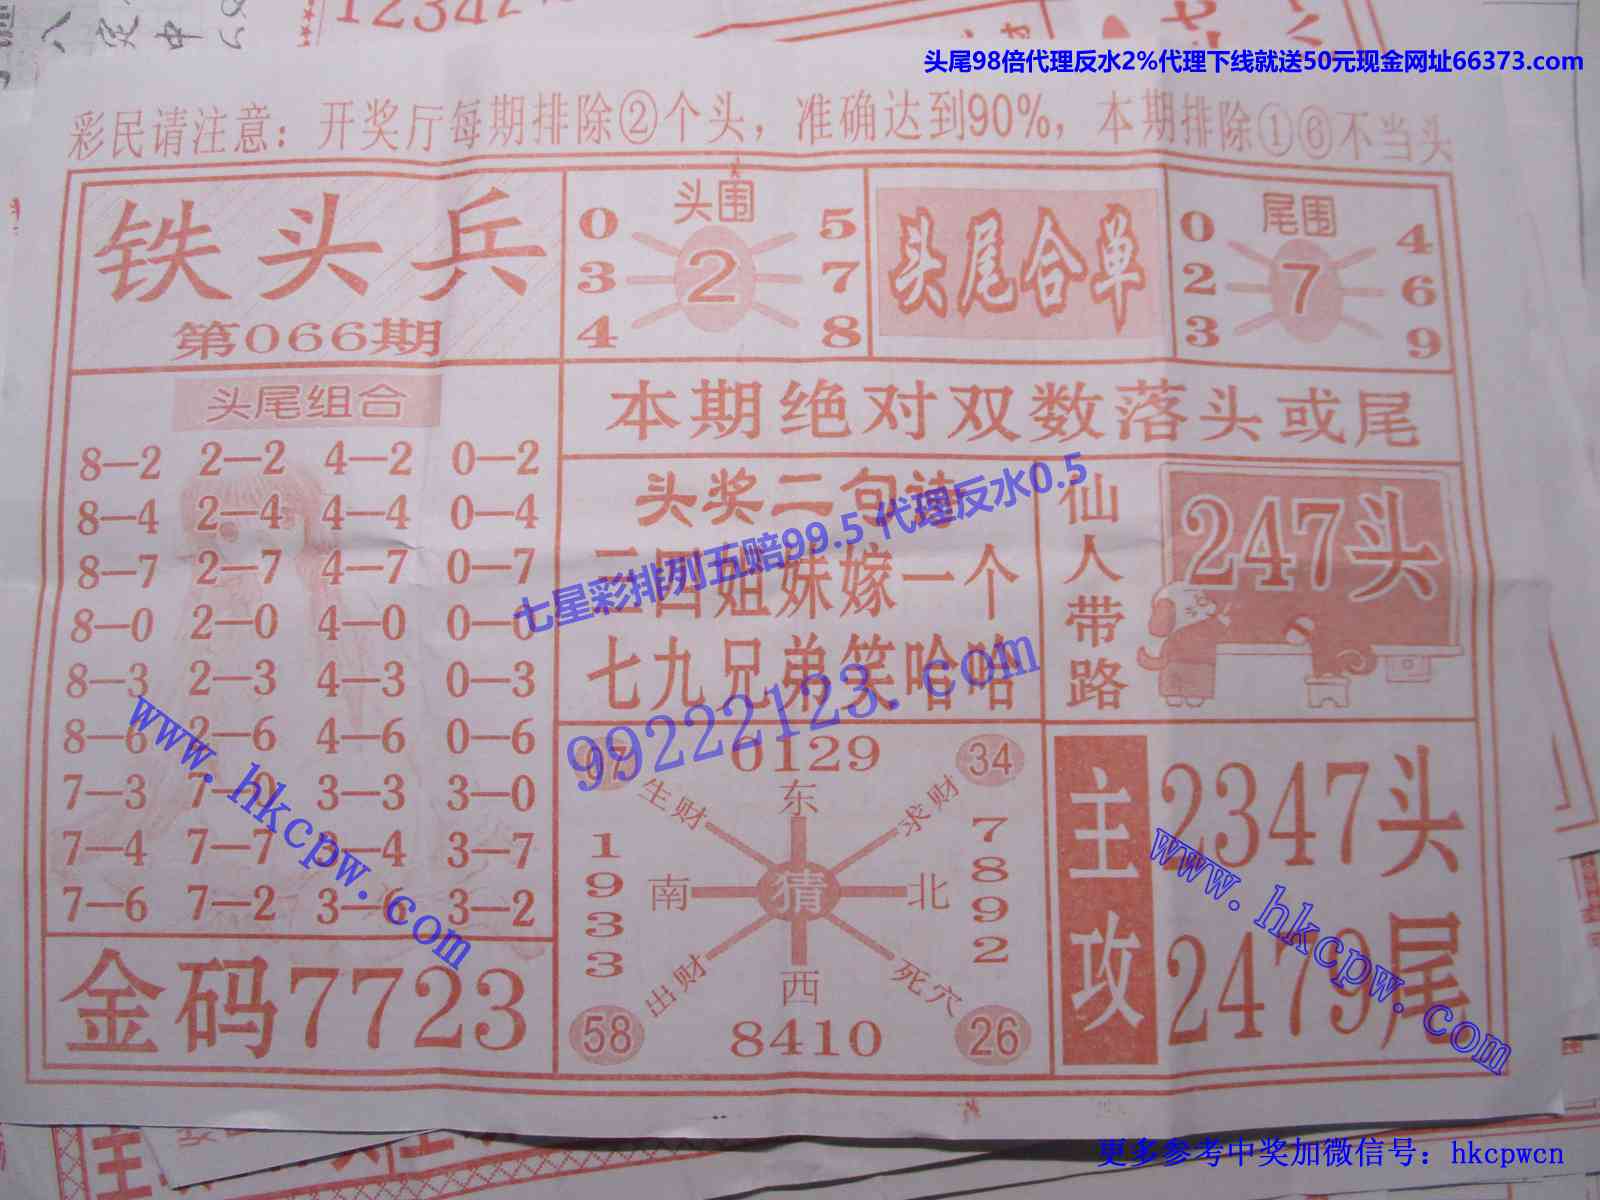 头尾98倍代理反水2%代理下线就送50元现金网址66373.com
彩民请注意：开奖厅每期排除②个头，准确达到90%，本期排除①⑥不当头
铁头兵
第066期
头围
0 5
3 2 7
4 8
头尾合单
尾围
0 4
2 7 6
3 9
头尾组合
8—2 2—2 4—2 0—2
8—4 2—4 4—4 0—4
8—7 2—7 4—7 0—7
8—0 2—0 4—0 0—0
8—3 2—3 4—3 0—3
8—6 2—6 4—6 0—6
7—3 7—0 3—3 3—0
7—4 7—7 3—4 3—7
7—6 7—2 3—6 3—2
金码7723
本期绝对双数落头或尾
头奖二句诗
四姐妹嫁一个
七九兄弟笑哈哈
仙人带路
247头
0129
34
生财
东
求财
1933
南
猜
北
7892
出财
西
死穴
58
8410
26
主攻
2347头
2479尾
七星彩排列五赔99.5 代理反水0.5
99222123.com
www.hkcpw.com
www.hkcpw.com
更多参考中奖加微信号：hkcpwcn